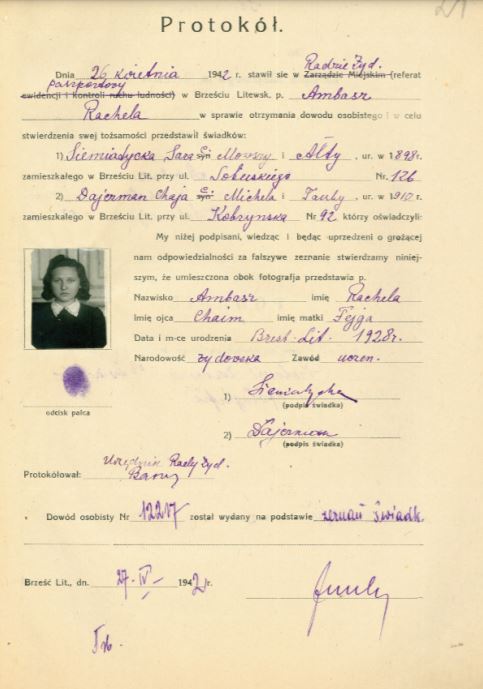 21
Protokół.
Radzie Żyd.
Dnia 26 kwietnia 1942 r. stawił się w Zarządzie Miejskim (referat
paszportowy
ewidencji i kontroli ruchu ludności) w Brześciu Litewsk. p. Ambasz
Rachela w sprawie otrzymania dowodu osobistego i w celu
stwierdzenia swej tożsamości przedstawił świadków:
1) Siemiatycka Sara syn c. Mowszy i Ałty, ur. w 1898 r.
zamieszkałego w Brześciu Lit. przy ul. Sobieskiego Nr. 126
2) Dajerman Chaja syn c. Michela i Tauby, ur. w 1910 r.
zamieszkałego w Brześciu Lit. przy ul. Kobryńska Nr 92 którzy oświadczyli:
My niżej podpisani, wiedząc i będąc uprzedzeni o grożącej
nam odpowiedzialności za fałszywe zeznanie stwierdzamy niniej-
szym, że umieszczona obok fotografja przedstawia p.
Nazwisko Ambasz imię Rachela
Imię ojca Chaim imię matki Fejga
Data i m-ce urodzenia Brest-Lit. 1928 r.
Narodowość żydowska Zawód uczen.
1) Siemiatycka
(podpis świadka)
odcisk palca
2) Dajerman
(podpis świadka)
Urzędnik Rady Żyd.
Protokółował:
Dowód osobisty Nr 12217 został wydany na podstawie zeznań świadk.
Brześć Lit., dn. 27-IV- 1942 r.